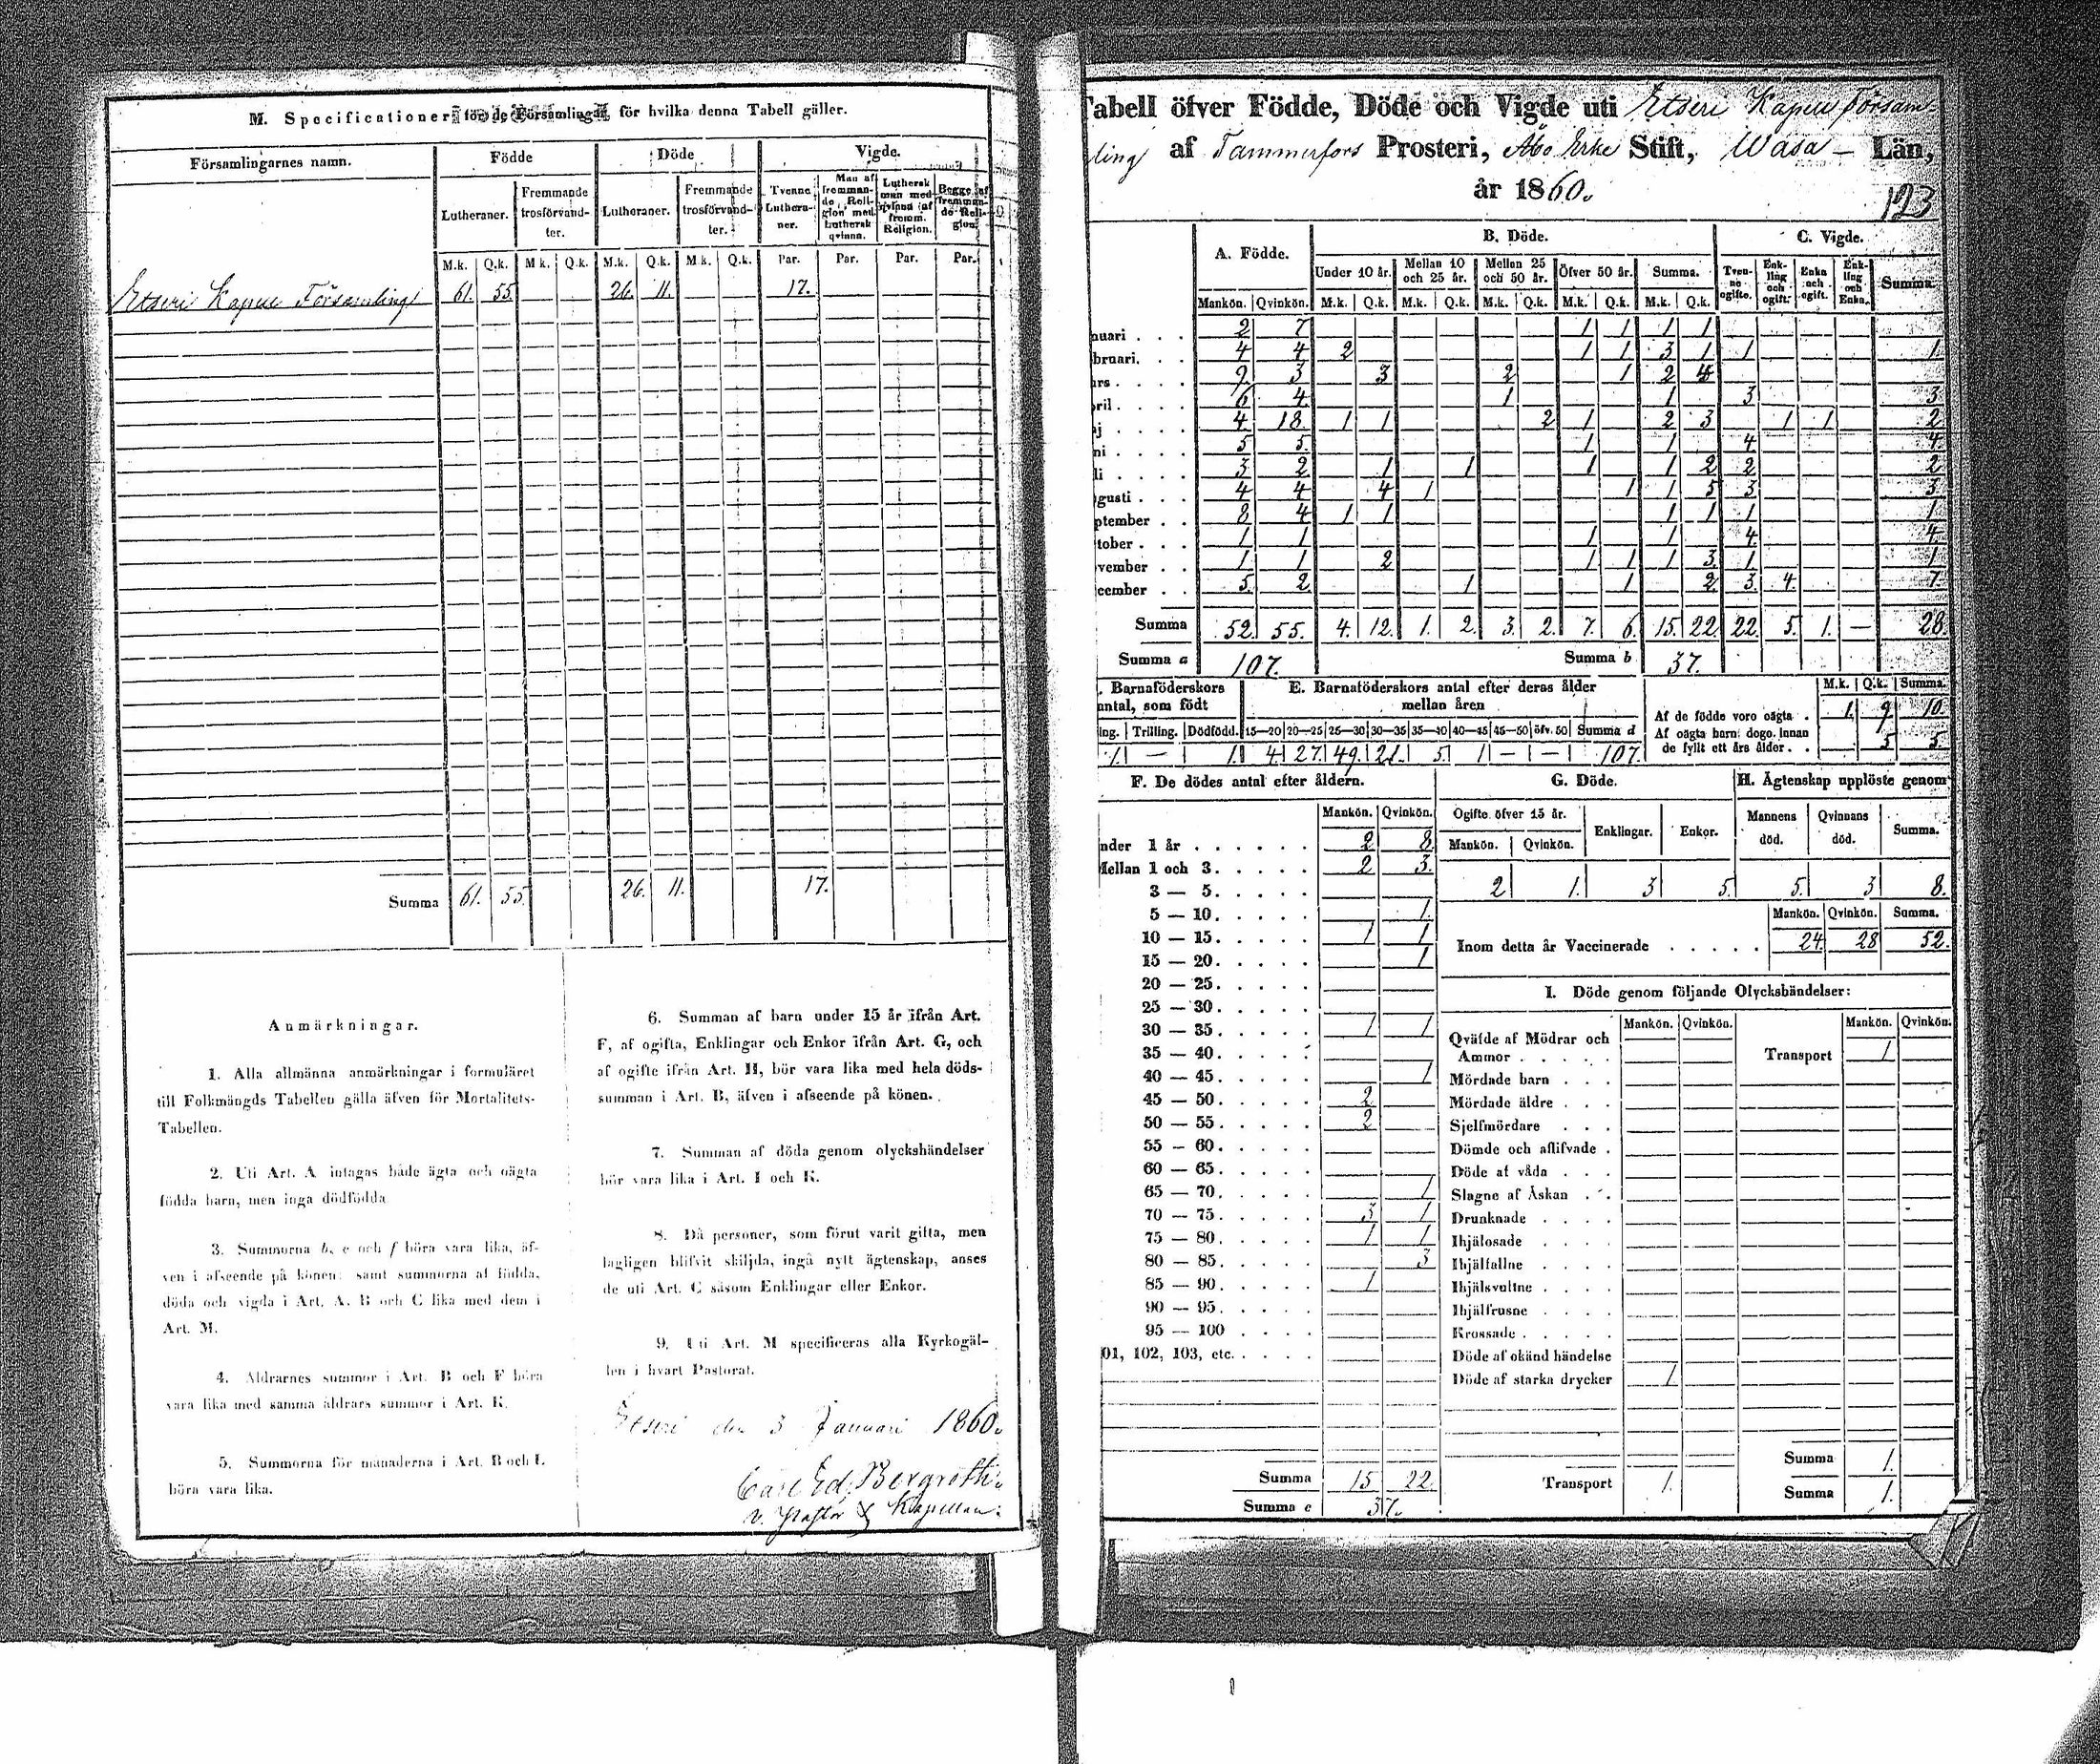 M. Specificationer för de Församlingar, för hvilka denna Tabell gäller.
Församlingarnes namn. Födde Döde Vigde.
Lutheraner. Fremmande trosförvandter. Lutheraner. Fremmande trosförvandter. Tvenne Lutheraner. Man af fremmande Religion med Luthersk qvinna. Luthersk man med qvinna af fremm. Religion. Begge af fremmande Religion.
M.k. Q.k. M.k. Q.k. M.k. Q.k. M.k. Q.k. Par. Par. Par. Par.
Etseri Kapell Församling 61. 55. 26. 11. 17.
Summa 61. 55. 26. 11. 17.
Anmärkningar.
1. Alla allmänna anmärkningar i formuläret
till Folkmängds Tabellen gälla äfven för Mortalitets-
Tabellen.
2. Uti Art. A intagas både ägta och oägta
födda barn, men inga dödfödda
3. Summorna b, c och f böra vara lika, äf-
ven i afseende på könen; samt summorna af födda,
döda och vigda i Art. A. B och C lika med dem i
Art. M.
4. Åldrarnes summor i Art. B och F böra
vara lika med samma åldrars summor i Art. K.
5. Summorna för månaderna i Art. B och L
böra vara lika.
6. Summan af barn under 15 år ifrån Art.
F, af ogifta, Enklingar och Enkor ifrån Art. G, och
af ogifte ifrån Art. H, bör vara lika med hela döds-
summan i Art. B, äfven i afseende på könen.
7. Summan af döda genom olyckshändelser
bör vara lika i Art. I och K.
8. Då personer, som förut varit gifta, men
lagligen blifvit skiljda, ingå nytt ägtenskap, anses
de uti Art. C såsom Enklingar eller Enkor.
9. Uti Art. M specificeras alla Kyrkogäl-
len i hvart Pastorat.
Etseri den 3 Januari 1860.
Carl Ed. Bergroth.
v. Pastor & Kapellan.
Tabell öfver Födde, Döde och Vigde uti Etseri Kapell Försam-
ling af Tammerfors Prosteri, Åbo Erke Stift, Wasa — Län,
år 1860.
123
A. Födde. B. Döde. C. Vigde.
Under 10 år. Mellan 10 och 25 år. Mellan 25 och 50 år. Öfver 50 år. Summa. Tvenne ogifte. Enkling och ogift. Enka och ogift. Enkling och Enka. Summa.
Mankön. Qvinkön. M.k. Q.k. M.k. Q.k. M.k. Q.k. M.k. Q.k. M.k. Q.k.
nuari . . . 2 7 1 1 1 1
bruari. . . 4 4 2 1 1 3 1 1 1.
rs . . . . 9 3 3 2 1 2 4
ril . . . . 6 4 1 1 3 3
j . . . . 4 18 1 1 2 1 2 3 1 1 2
ni . . . . 5 5 1 1 4 4
li . . . . 3 2 1 1 1 1 2 2 2
gusti . . . 4 4 4 1 1 1 5 3 3
ptember . . 8 4 1 1 1 1 1 1
tober . . . 1 1 1 1 4 4
vember . . 1 1 2 1 1 1 3 1 1
cember . . 5 2 1 1 2 3 4 7
Summa 52. 55. 4. 12. 1. 2. 3. 2. 7. 6. 15. 22. 22. 5. 1. — 28.
Summa a 107. Summa b 37.
. Barnaföderskors antal, som födt
ing. Trilling. Dödfödd.
1. — 1.
E. Barnaföderskors antal efter deras ålder mellan åren
15—20 20—25 25—30 30—35 35—40 40—45 45—50 öfv. 50 Summa d
4. 27. 49. 21. 5. 1 — — 107.
M.k. Q.k. Summa.
Af de födde voro oägta . 1. 9. 10.
Af oägta barn dogo innan
de fyllt ett års ålder . . 5 5.
F. De dödes antal efter åldern.
Mankön. Qvinkön.
nder 1 år . . . . . . 2 8
Mellan 1 och 3. . . . . 2 3.
3 — 5. . . . .
5 — 10. . . . . 1.
10 — 15. . . . . 1 1
15 — 20. . . . . 1
20 — 25. . . . .
25 — 30. . . . .
30 — 35. . . . . 1 1
35 — 40. . . . .
40 — 45. . . . . 1
45 — 50. . . . . 2
50 — 55. . . . . 2
55 — 60. . . . .
60 — 65. . . . .
65 — 70. . . . . 1
70 — 75. . . . . 3 1
75 — 80. . . . . 1 1
80 — 85. . . . . 3
85 — 90. . . . . 1
90 — 95. . . . .
95 — 100 . . . .
01, 102, 103, etc. . . . .
Summa 15 22.
Summa c 37.
G. Döde.
Ogifte öfver 15 år. Enklingar. Enkor.
Mankön. Qvinkön.
2 1. 3 5.
H. Ägtenskap upplöste genom
Mannens död. Qvinnans död. Summa.
5. 3 8.
Mankön. Qvinkön. Summa.
Inom detta år Vaccinerade . . . . . 24. 28 52.
I. Döde genom följande Olycksbändelser:
Mankön. Qvinkön. Mankön. Qvinkön.
Qväfde af Mödrar och
Ammor . . . . . Transport 1
Mördade barn . . .
Mördade äldre . . .
Sjelfmördare . . .
Dömde och aflifvade .
Döde af våda . . .
Slagne af Åskan . . .
Drunknade . . . .
Ihjälosade . . . .
Ihjälfallne . . . .
Ihjälsvultne . . . .
Ihjälfrusne . . . .
Krossade . . . . .
Döde af okänd händelse
Döde af starka drycker 1
Summa 1.
Transport 1. Summa 1.